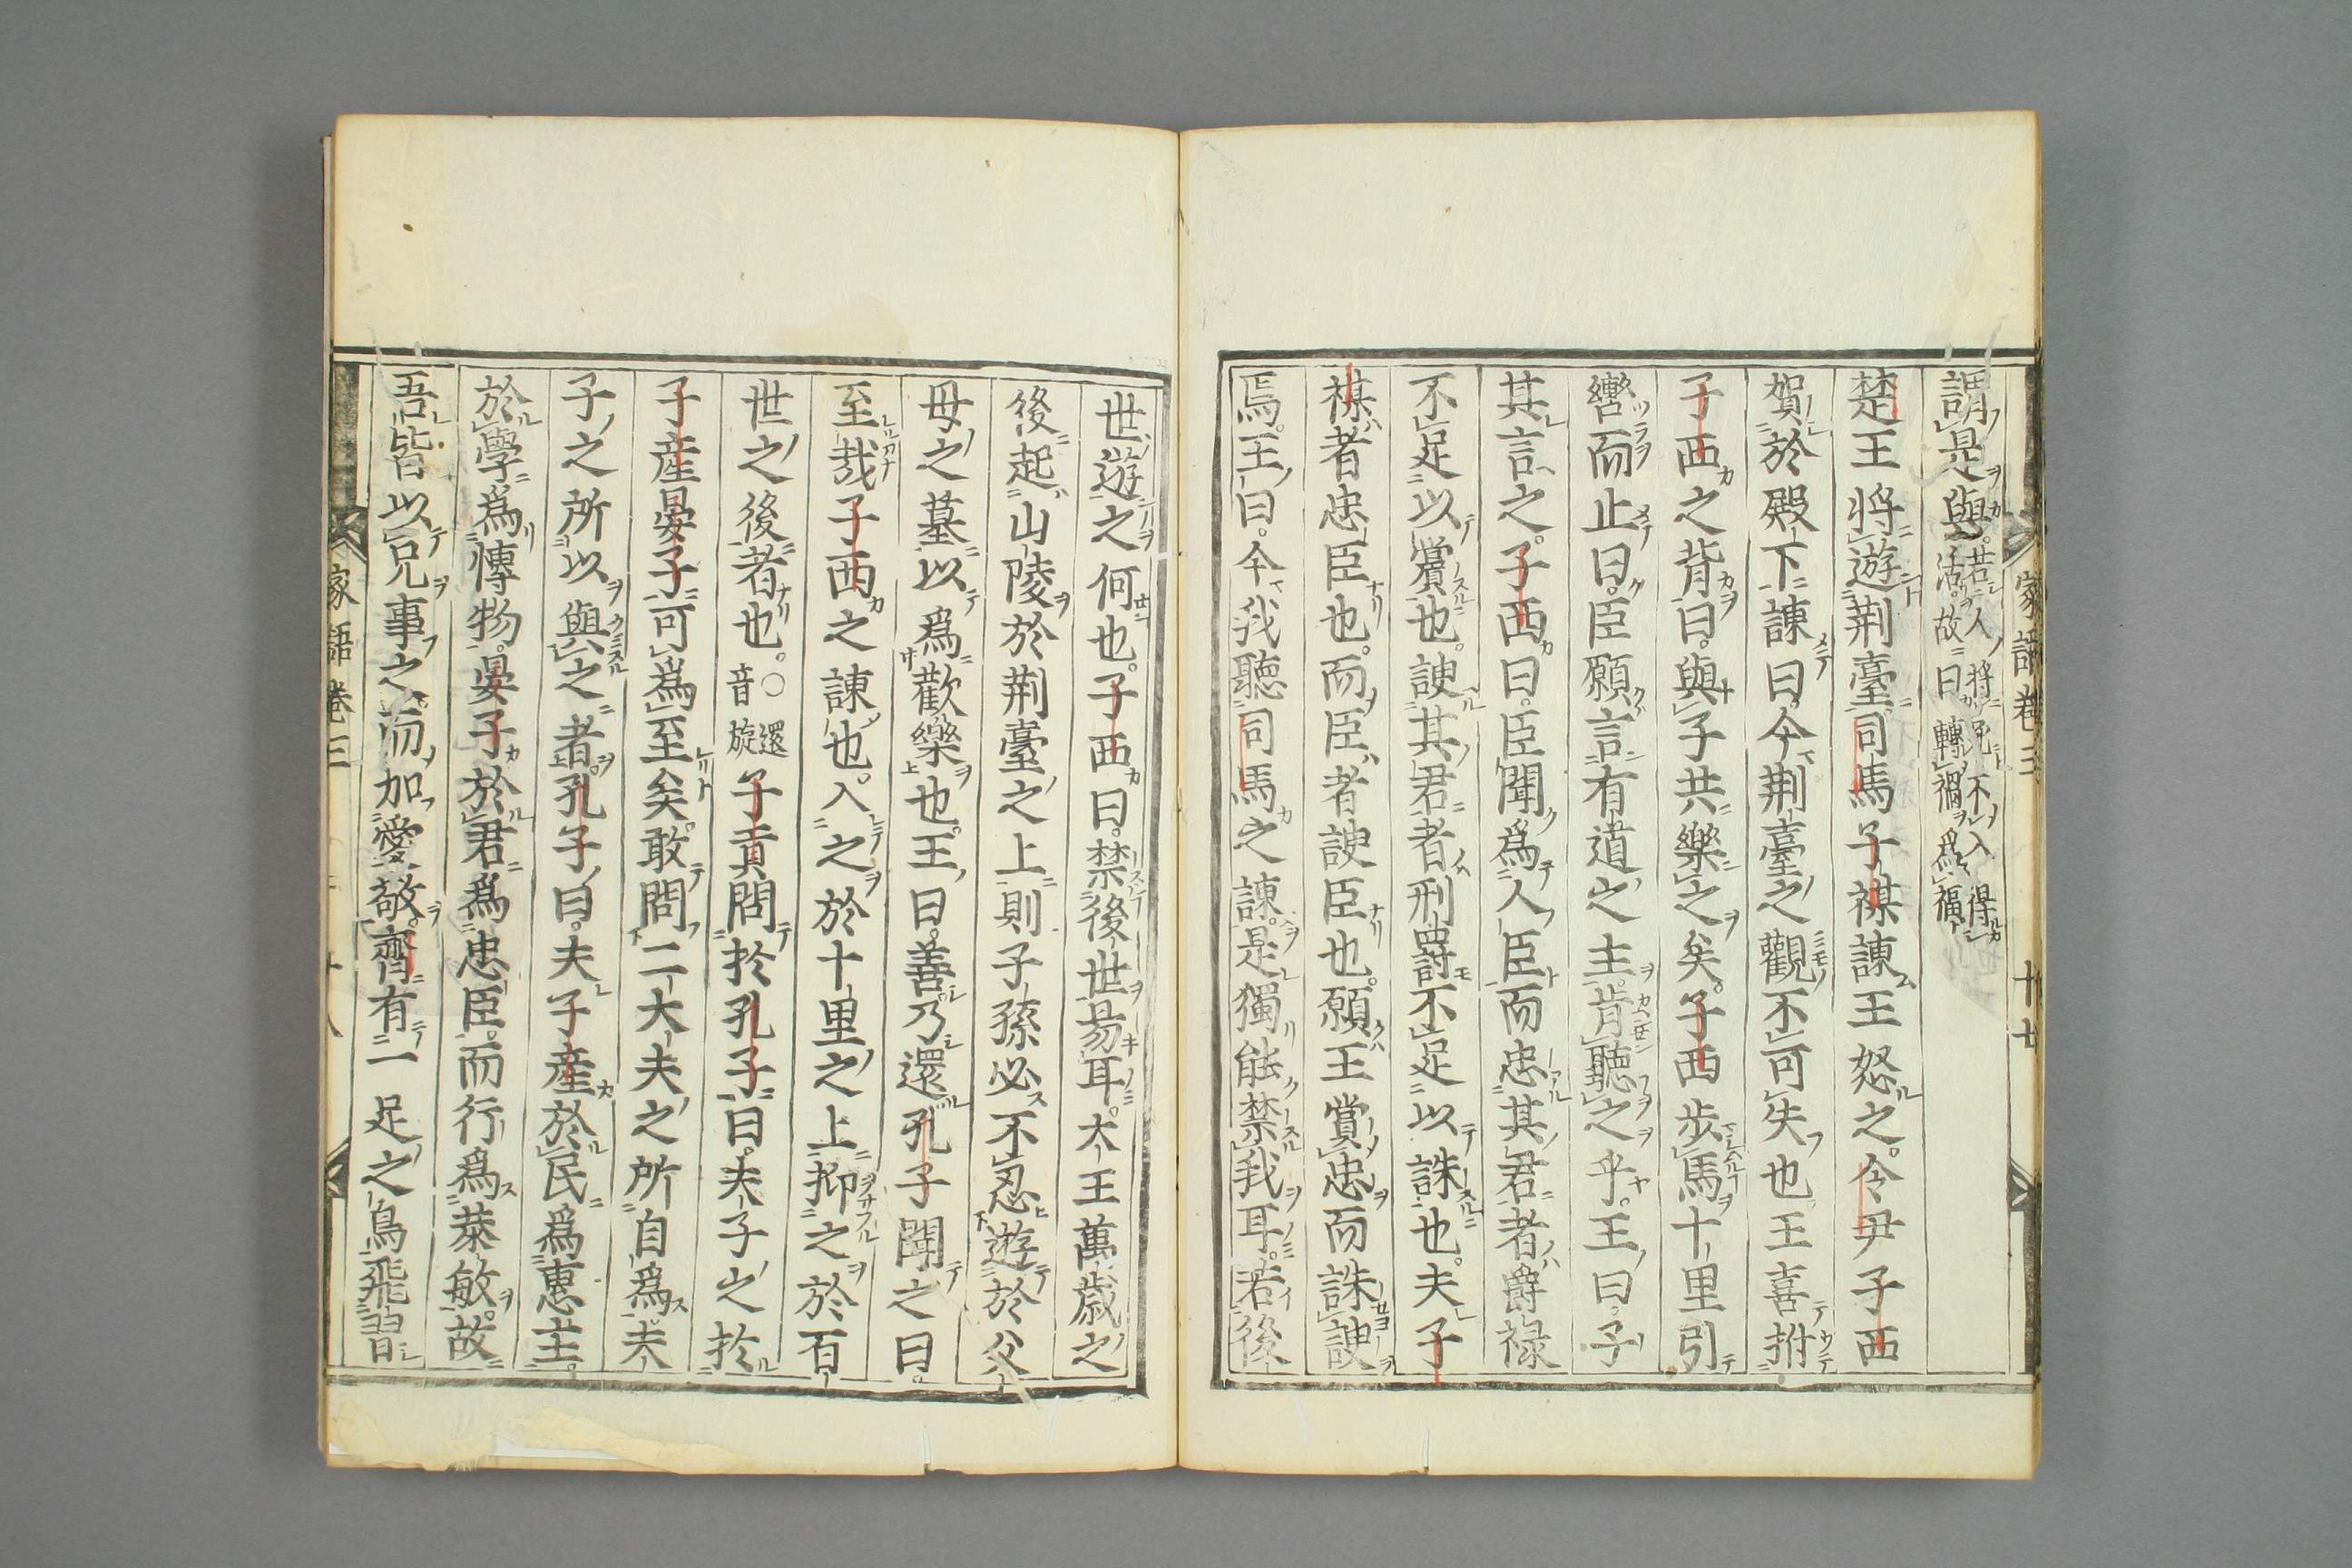 謂是與。若人將死不入得活。故曰轉禍爲福
楚王將遊荆臺。司馬子祺諫王怒之。令尹子西
賀於殿下諫曰。今荆臺之觀不可失也王喜拊
子西之背曰。與子共樂之矣。子西步馬十里引
轡而止曰。臣願言有道之主肯聽之乎。王曰。子
其言之。子西曰。臣聞爲人臣而忠其君者爵祿
不足以賞也。諛其君者刑罸不足以誅也。夫子
祺者忠臣也。而臣者諛臣也。願王賞忠而誅諛
焉。王曰。今我聽司馬之諫。是獨能禁我耳。若後
家語卷三 十七
世遊之何也。子西曰。禁後世易耳。大王萬歲之
後起山陵於荆臺之上則子孫必不忍遊於父
母之墓以爲歡樂也。王曰。善。乃還孔子聞之曰。
至哉子西之諫也。入之於十里之上抑之於百
世之後者也。○還音旋子貢問於孔子曰。夫子之於
子產晏子可爲至矣。敢問二大夫之所自爲。夫
子之所以與之者。孔子曰。夫子產於民爲惠主。
於學爲愽物。晏子於君爲忠臣。而行爲恭敏。故
吾皆以兄事之。而加愛敬。齊有一足之鳥飛習
家語卷三 十八